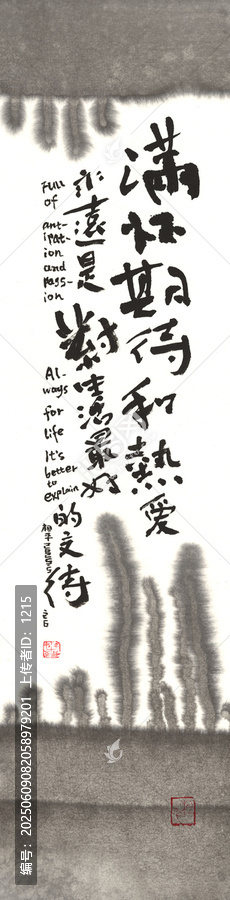 滿怀期待和熱愛
永遠是對生活最好
的交待
Full
of ant-
ipat-
ion
and pass-
ion
Al-
ways
for
life
It's
better
to explain
编号：20250609082058979201 上传者ID：1215